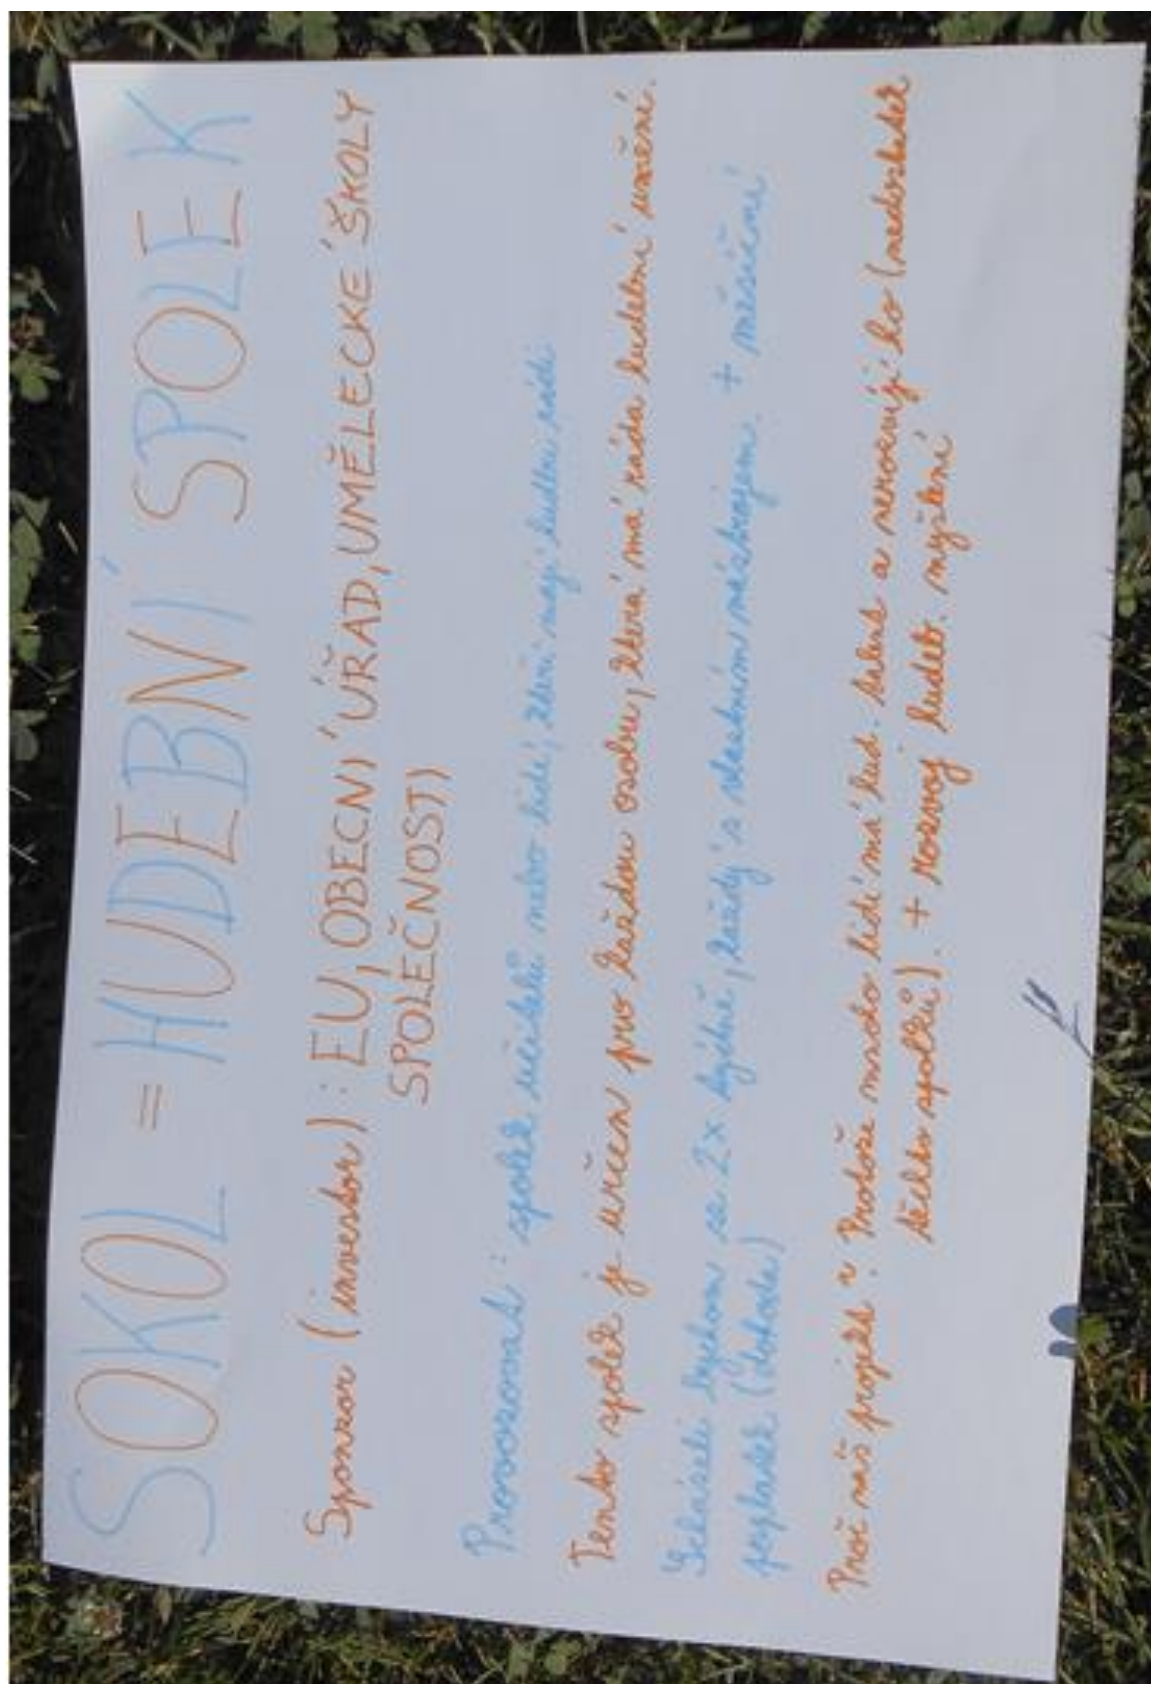 SOKOL = HUDEBNÍ SPOLEK
Sponzor (investor): EU, OBECNÍ ÚŘAD, UMĚLECKÉ ŠKOLY
SPOLEČNOSTI
Provozovat: spolek učitelů nebo lidí, kteří mají hudbu rádi
Tento spolek je určen pro každou osobu, která má ráda hudební umění.
Scházeli bychom se 2x týdně, každý s vlastním nástrojem. + měsíční
poplatek (dohoda)
Proč náš projekt? Protože mnoho lidí má hud. talent a nerozvíjí ho (nedostatek
těchto spolků). + rozvoj hudeb. myšlení